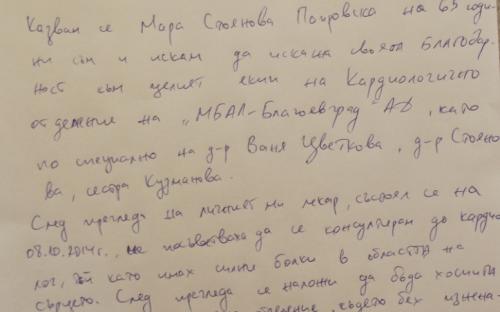 Казвам се Мара Стоянова Поировска на 63 годи-
ни съм и искам да искажа своята Благодар-
ност към целият екип на Кардиологичото
отделение на „МБАЛ-Благоевград" АД, като
по специално на д-р Ваня Цветкова, д-р Стояно
ва, сестра Кузманова.
След прегледа на личният ми лекар, състоял се на
08.10.2014г., ме посъветваха да се консултирам до кардио
лог, тъй като имах силни болки в областта на
сърцето. След прегледа се наложи да бъда хоспита
отделение, където бях изнена-